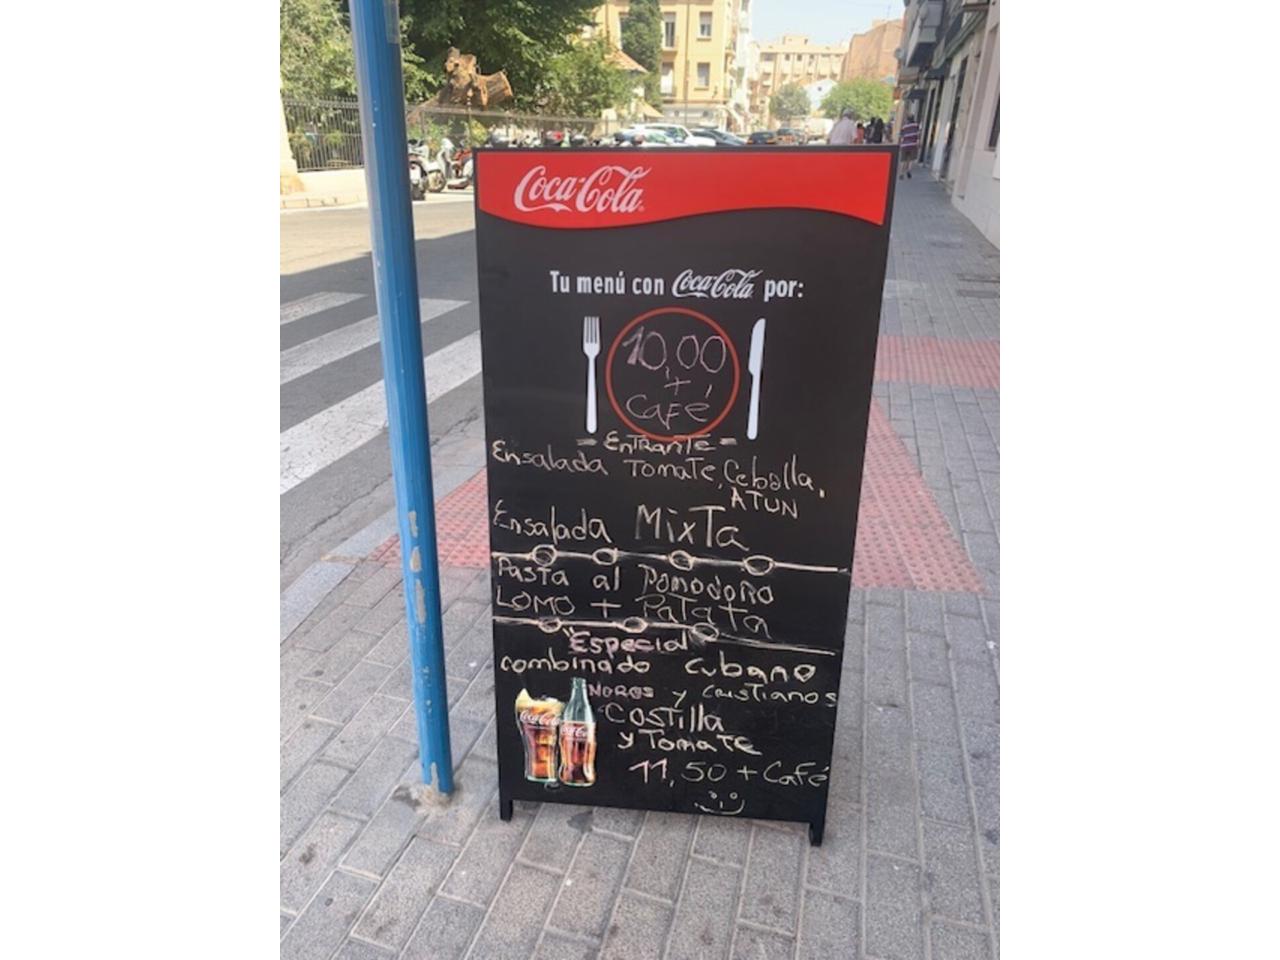 Coca-Cola
Tu menú con Coca-Cola por:
10,00
+
CAFÉ
= EnTRanTE =
Ensalada TomaTE, Cebolla,
ATUN
Ensalada MixTa
PasTa al Pomodoro
LOMO + PaTaTa
"Especial"
combinado cubano
MOROS y CRISTIANOS
COSTilla
y TomaTE
11,50 + Café
Coca-Cola
Coca-Cola